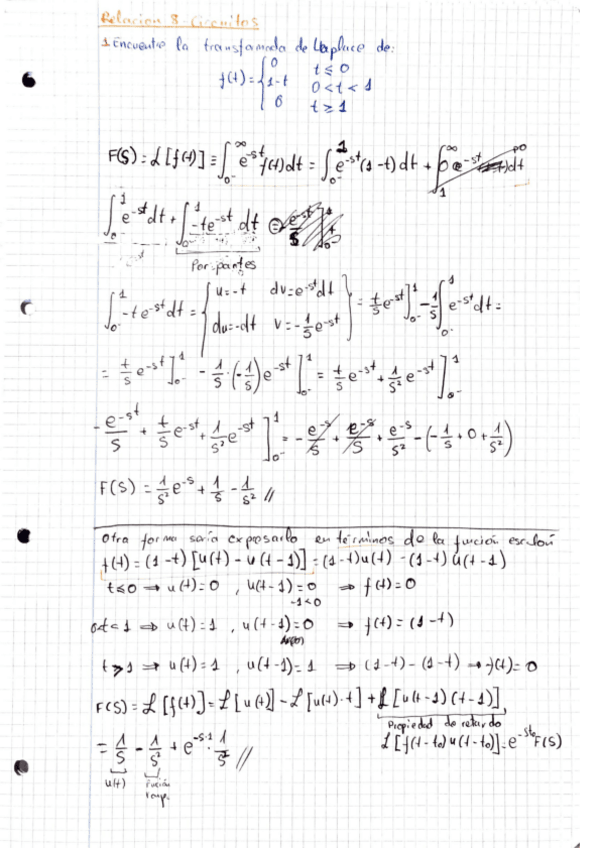 Relacion 8 - Circuitos
1 Encuentre la transformada de Laplace de:
f(t) = { 0 t ≤ 0
1-t 0 < t < 1
0 t ≥ 1
F(S) = ℒ[f(t)] = ∫_{0-}^{∞} e^{-st} f(t) dt = ∫_{0-}^{1} e^{-st} (1-t) dt + ∫_{1}^{∞} 0 e^{-st} dt
∫_{0-}^{1} e^{-st} dt + ∫_{0-}^{1} -t e^{-st} dt =
Por partes
∫_{0-}^{1} -t e^{-st} dt = { u = -t dv = e^{-st} dt
du = -dt v = -1/s e^{-st} } = t/s e^{-st} ]_{0-}^{1} - 1/s ∫_{0-}^{1} e^{-st} dt =
= t/s e^{-st} ]_{0-}^{1} - 1/s · (-1/s) e^{-st} ]_{0-}^{1} = t/s e^{-st} + 1/s² e^{-st} ]_{0-}^{1}
- e^{-st}/s + t/s e^{-st} + 1/s² e^{-st} ]_{0-}^{1} = - e^{-s}/s + e^{-s}/s + e^{-s}/s² - (-1/s + 0 + 1/s²)
F(S) = 1/s² e^{-s} + 1/s - 1/s² //
Otra forma sería expresarlo en términos de la función escalón
f(t) = (1-t) [u(t) - u(t-1)] = (1-t)u(t) - (1-t) u(t-1)
t ≤ 0 ⇒ u(t) = 0 , u(t-1) = 0 ⇒ f(t) = 0
-1<0
0<t<1 ⇒ u(t) = 1 , u(t-1) = 0 ⇒ f(t) = (1-t)
t ≥ 1 ⇒ u(t) = 1 , u(t-1) = 1 ⇒ (1-t) - (1-t) ⇒ f(t) = 0
F(S) = ℒ[f(t)] = ℒ[u(t)] - ℒ[u(t)·t] + ℒ[u(t-1)(t-1)],
Propiedad de retardo
= 1/s - 1/s² + e^{-s·1} · 1/s² // ℒ[f(t-t₀) u(t-t₀)] = e^{-st₀} F(S)
u(t) Función
ramp.